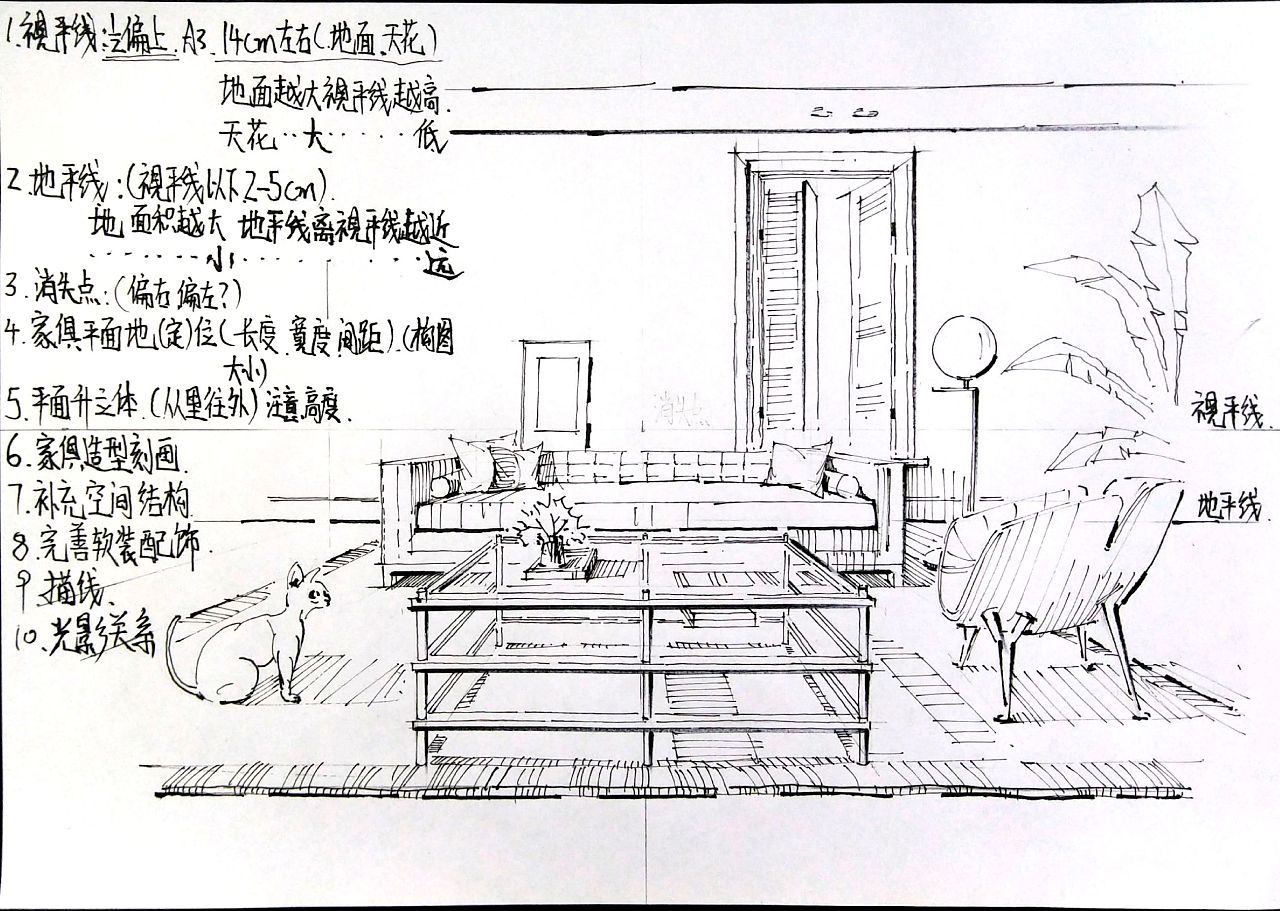 1.視平线:偏上.A3.14cm左右(.地面、天花)
地面越大視平线越高.
天花··大·····低
2.地平线:(視平线以下2-5cm).
地面积越大 地平线离視平线越近
·······小·········远
3.消失点:(偏右偏左?)
4.家俱平面地(定)位(长度、寬度、间距).(构图
大小)
5.平面升立体.(从里往外)注意高度.
6.家俱造型刻画.
7.补充空间结构.
8.完善软装配饰.
9.描线.
10.光影关系
消失点
視平线.
地平线.